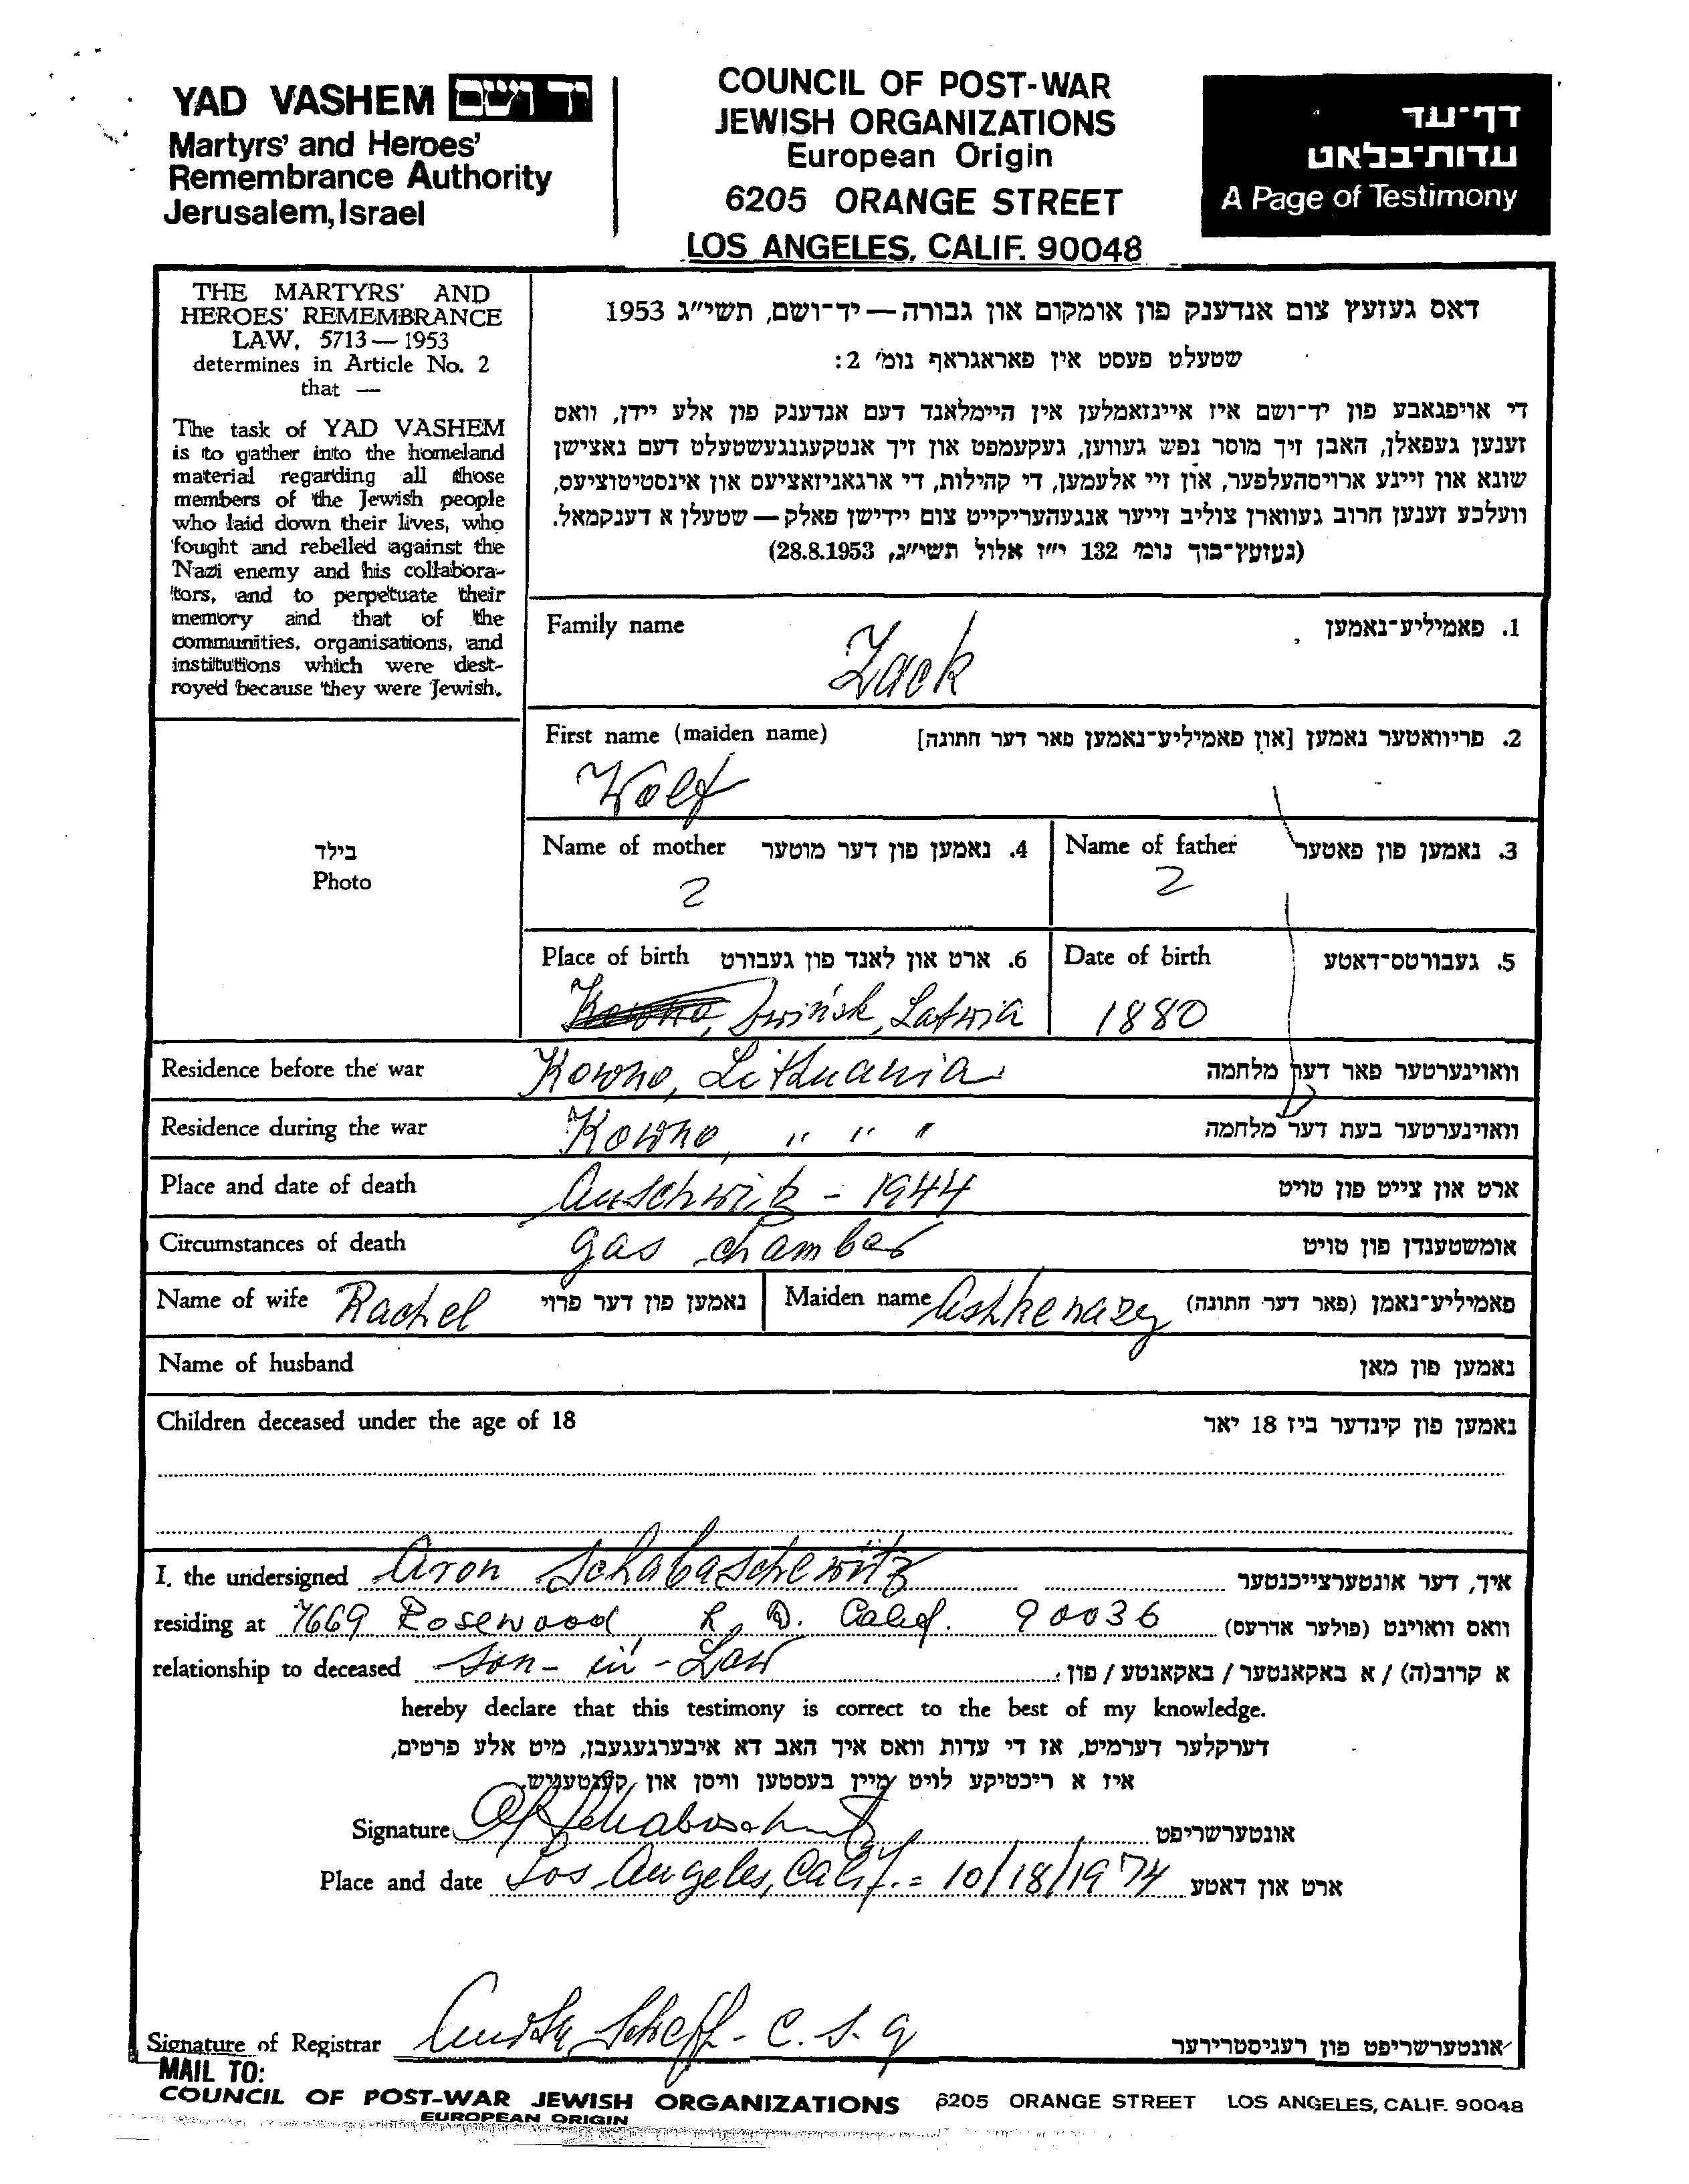 YAD VASHEM יד ושם
Martyrs' and Heroes'
Remembrance Authority
Jerusalem, Israel
COUNCIL OF POST-WAR
JEWISH ORGANIZATIONS
European Origin
6205 ORANGE STREET
LOS ANGELES, CALIF. 90048
דף-עד
עדות-בלאט
A Page of Testimony
THE MARTYRS' AND
HEROES' REMEMBRANCE
LAW, 5713—1953
determines in Article No. 2
that —
The task of YAD VASHEM
is to gather into the homeland
material regarding all those
members of the Jewish people
who laid down their lives, who
fought and rebelled against the
Nazi enemy and his collabora-
tors, and to perpetuate their
memory and that of the
communities, organisations, and
institutions which were dest-
royed because they were Jewish.
דאס געזעץ צום אנדענק פון אומקום און גבורה — יד-ושם, תשי"ג 1953
שטעלט פעסט אין פאראגראף נומ' 2:
די אויפגאבע פון יד-ושם איז איינזאמלען אין היימלאנד דעם אנדענק פון אלע יידן, וואס
זענען געפאלן, האבן זיך מוסר נפש געווען, געקעמפט און זיך אנטקעגנגעשטעלט דעם נאצישן
שונא און זיינע ארויסהעלפער, און זיי אלעמען, די קהילות, די ארגאניזאציעס און אינסטיטוציעס,
וועלכע זענען חרוב געווארן צוליב זייער אנגעהעריקייט צום יידישן פאלק — שטעלן א דענקמאל.
(געזעץ-בוך נומ' 132 י"ז אלול תשי"ג, 28.8.1953)
Family name Zack 1. פאמיליע-נאמען
First name (maiden name) 2. פריוואטער נאמען [און פאמיליע-נאמען פאר דער חתונה]
Wolf
בילד
Photo
Name of mother 4. נאמען פון דער מוטער
2
Name of father 3. נאמען פון פאטער
2
Place of birth 6. ארט און לאנד פון געבורט
Dwińsk, Latwia
Date of birth 5. געבורטס-דאטע
1880
Residence before the war Kowno, Lithuania וואוינערטער פאר דער מלחמה
Residence during the war Kowno, " " " וואוינערטער בעת דער מלחמה
Place and date of death Auschwitz - 1944 ארט און צייט פון טויט
Circumstances of death gas chamber אומשטענדן פון טויט
Name of wife Rachel נאמען פון דער פרוי Maiden name Ashkenazy פאמיליע-נאמן (פאר דער חתונה)
Name of husband נאמען פון מאן
Children deceased under the age of 18 נאמען פון קינדער ביז 18 יאר
I, the undersigned Aron Schabaschewitz איך, דער אונטערצייכנטער
residing at 7669 Rosewood L.A. Calif. 90036 וואס וואוינט (פולער אדרעס)
relationship to deceased Son-in-Law א קרוב(ה) / א באקאנטער / באקאנטע / פון
hereby declare that this testimony is correct to the best of my knowledge.
דערקלער דערמיט, אז די עדות וואס איך האב דא איבערגעגעבן, מיט אלע פרטים,
איז א ריכטיקע לויט מיין בעסטען וויסן און קענטעניש.
Signature אונטערשריפט
Place and date Los Angeles, Calif. = 10/18/1974 ארט און דאטע
Signature of Registrar אונטערשריפט פון רעגיסטרירער
MAIL TO:
COUNCIL OF POST-WAR JEWISH ORGANIZATIONS 6205 ORANGE STREET LOS ANGELES, CALIF. 90048
EUROPEAN ORIGIN